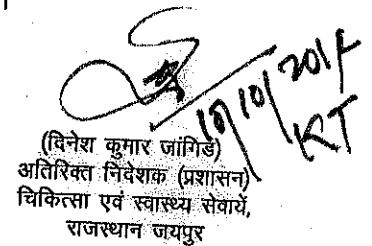 (दिनेश कुमार जांगिड)
अतिरिक्त निदेशक (प्रशासन)
चिकित्सा एवं स्वास्थ्य सेवायें,
राजस्थान जयपुर